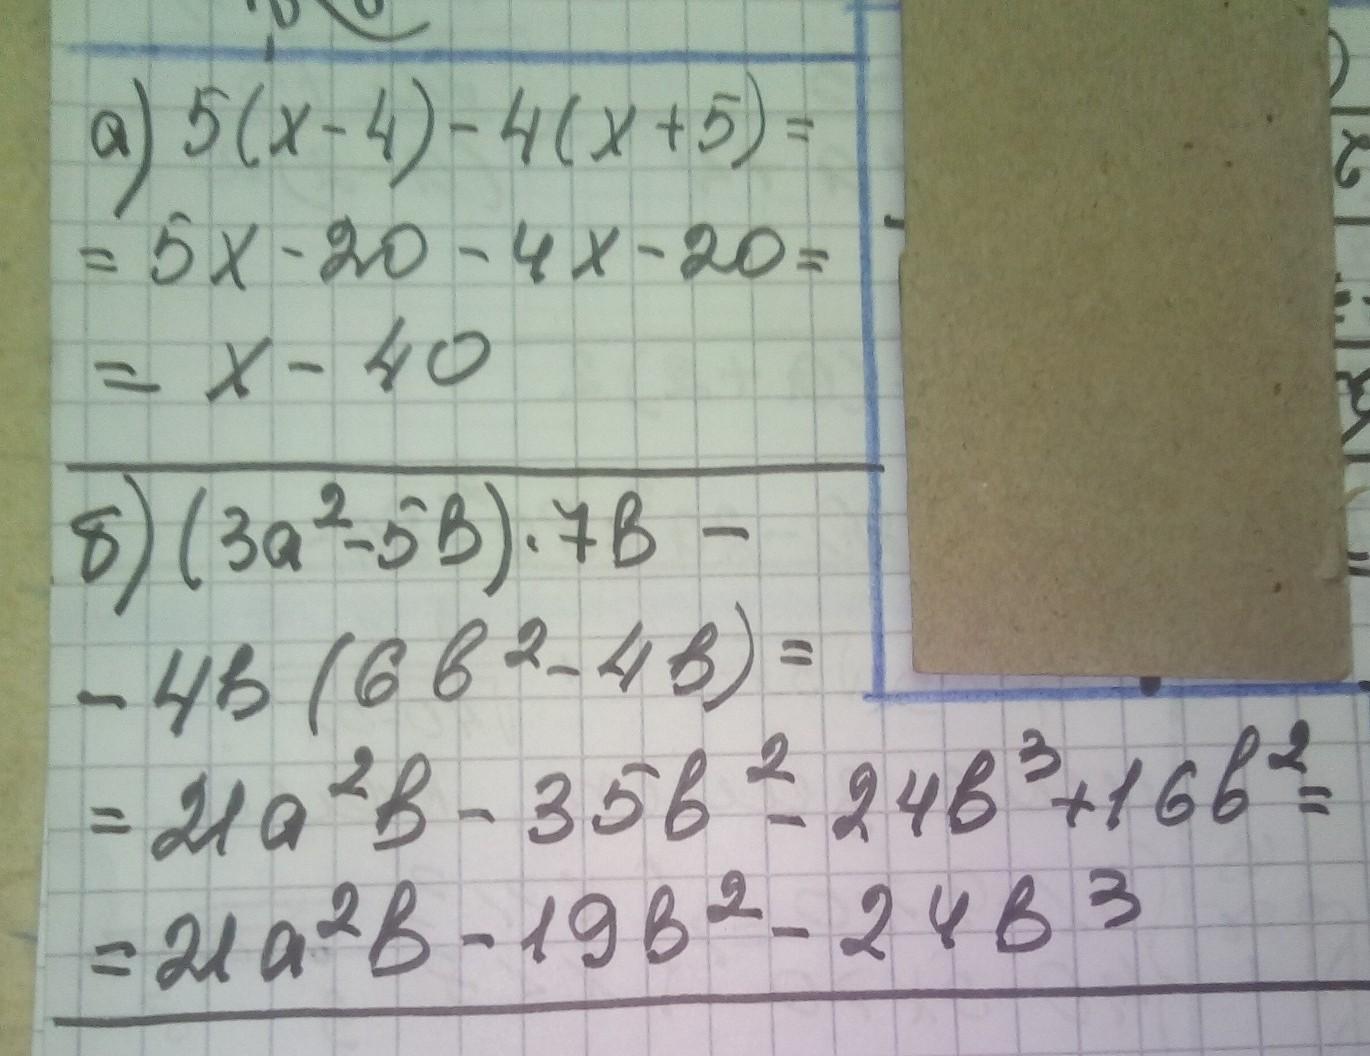 а) 5(x-4)-4(x+5)=
= 5x-20-4x-20=
= x-40
б) (3a²-5в)·7в -
- 4в (6в²-4в)=
= 21a²в - 35в² - 24в³+16в²=
= 21a²в - 19в² - 24в³